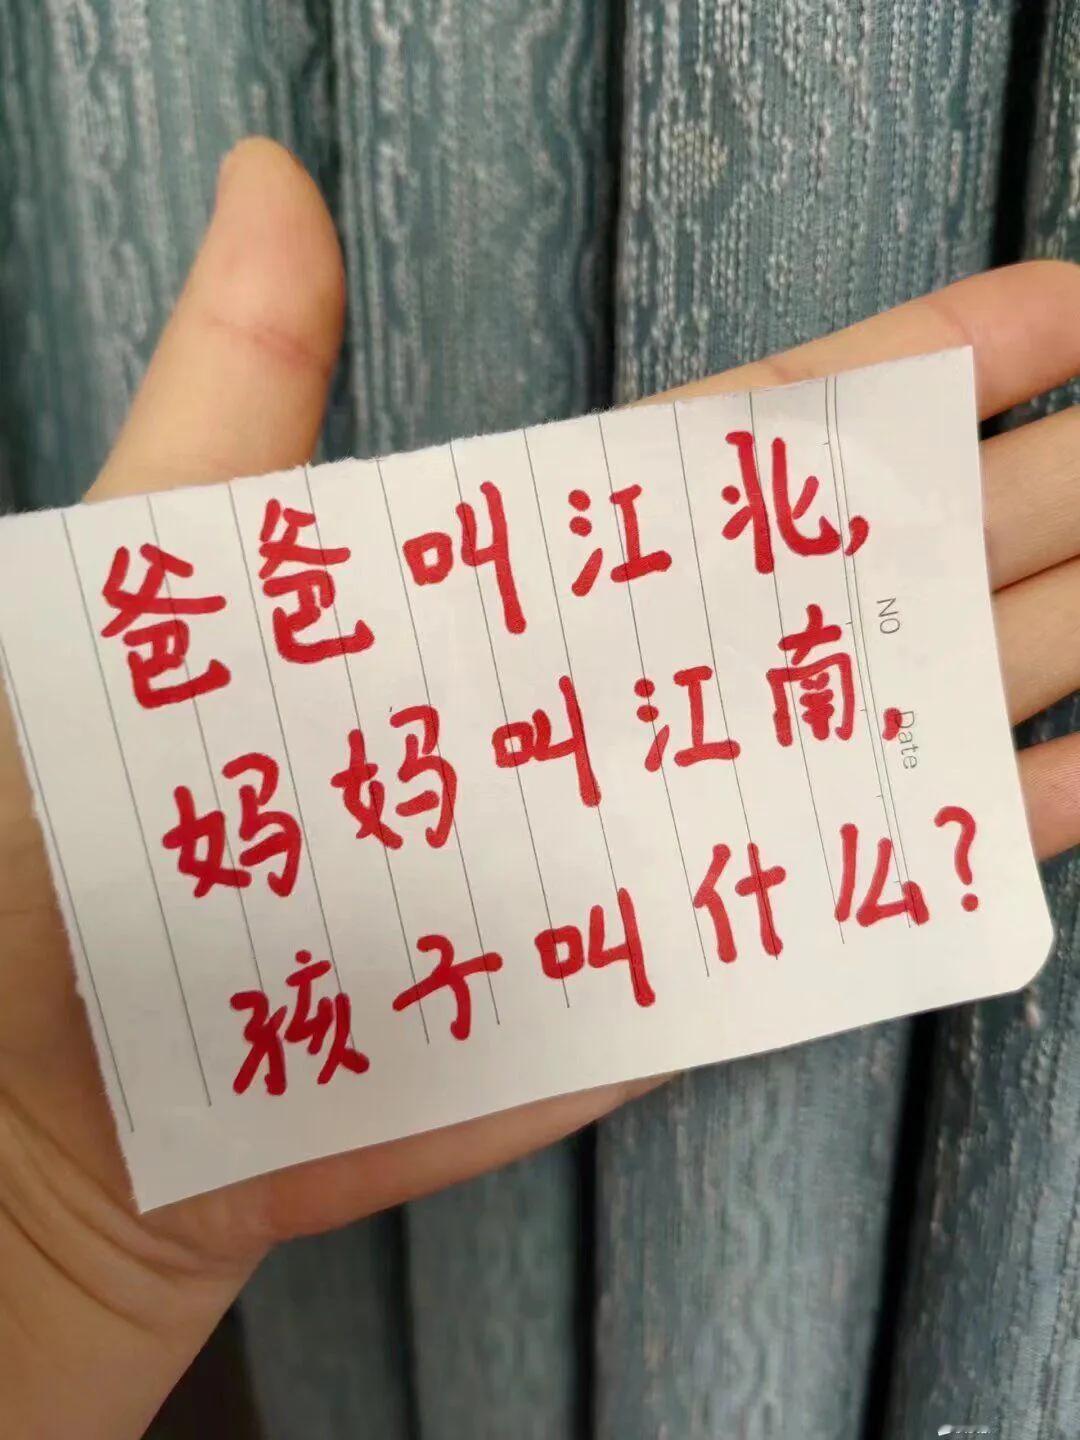 爸爸叫江北,
妈妈叫江南,
孩子叫什么?
NO
Date